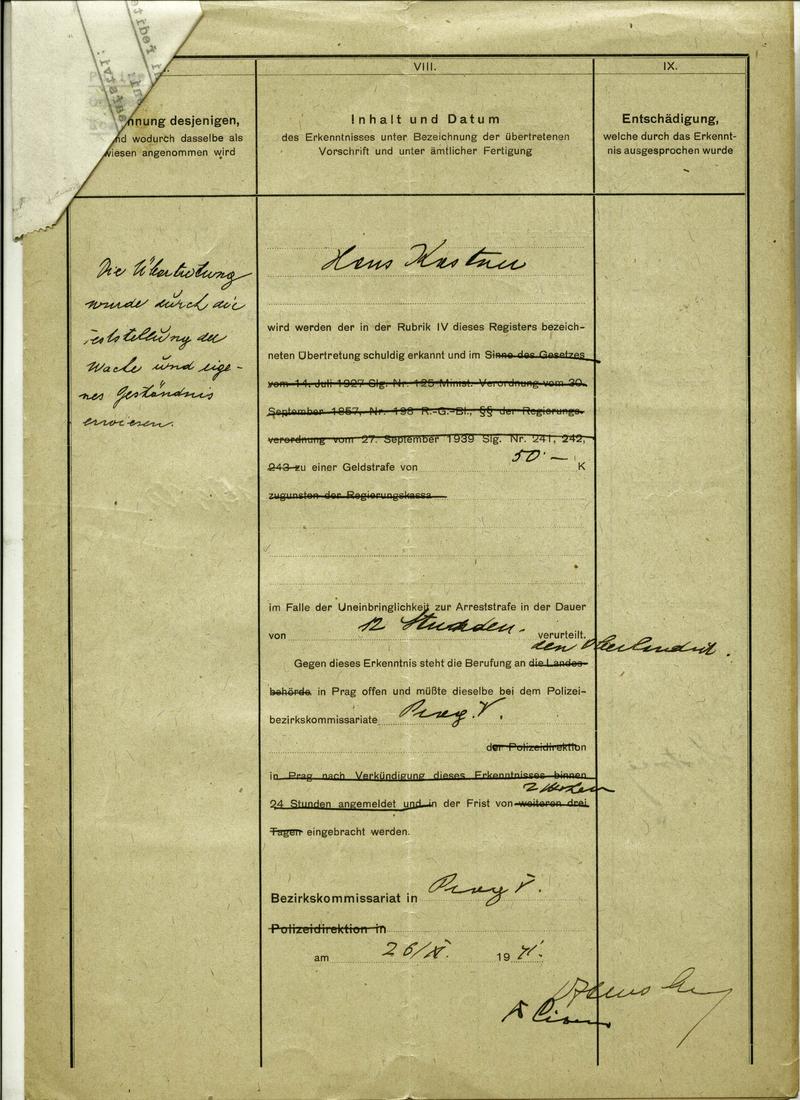 VIII.
IX.
nnung desjenigen,
nd wodurch dasselbe als
wiesen angenommen wird
Inhalt und Datum
des Erkenntnisses unter Bezeichnung der übertretenen
Vorschrift und unter ämtlicher Fertigung
Entschädigung,
welche durch das Erkennt-
nis ausgesprochen wurde
Die Übertretung
wurde durch die
Feststellung der
Wache und eige-
nes Geständnis
erwiesen.
Hans Kastner
wird werden der in der Rubrik IV dieses Registers bezeich-
neten Übertretung schuldig erkannt und im Sinne des Gesetzes
vom 14. Juli 1927 Slg. Nr. 125 Minist. Verordnung vom 30.
September 1857, Nr. 198 R.-G.-Bl., §§ der Regierungs-
verordnung vom 27. September 1939 Slg. Nr. 241, 242,
243 zu einer Geldstrafe von 50·— K
zugunsten der Regierungskassa
im Falle der Uneinbringlichkeit zur Arreststrafe in der Dauer
von 12 Stunden. verurteilt.
den Oberlandrat.
Gegen dieses Erkenntnis steht die Berufung an die Landes-
behörde in Prag offen und müßte dieselbe bei dem Polizei-
bezirkskommissariate Prag V.
der Polizeidirektion
in Prag nach Verkündigung dieses Erkenntnisses binnen
2 Wochen
24 Stunden angemeldet und in der Frist von weiteren drei
Tagen eingebracht werden.
Bezirkskommissariat in Prag V.
Polizeidirektion in
am 26/XI. 1941.